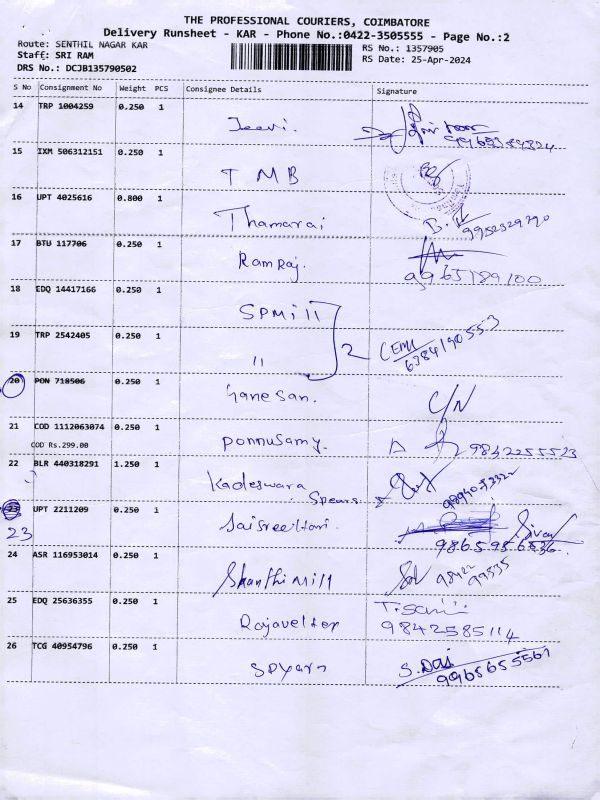 THE PROFESSIONAL COURIERS, COIMBATORE
Delivery Runsheet - KAR - Phone No.:0422-3505555 - Page No.:2
Route: SENTHIL NAGAR KAR
RS No.: 1357905
Staff: SRI RAM
RS Date: 25-Apr-2024
DRS No.: DCJB135790502
S No Consignment No Weight PCS Consignee Details Signature
14 TRP 1004259 0.250 1
Jeevi.
15 IXM 506312151 0.250 1
TMB
16 UPT 4025616 0.800 1
Thamarai
9952329790
17 BTU 117706 0.250 1
Ramraj.
9965189100
18 EDQ 14417166 0.250 1
SPMill
19 TRP 2542405 0.250 1
11 2
6384190553
20 PON 718506 0.250 1
Ganesan. C/N
21 COD 1112063074 0.250 1
COD Rs.299.00
Ponnusamy. 9842255523
22 BLR 440318291 1.250 1
Kadeswara
Spears
23 UPT 2211209 0.250 1
23
SaiSreeHari.
24 ASR 116953014 0.250 1
Shanthi Mill
25 EDQ 25636355 0.250 1
Rajaveltex 9842585114
26 TCG 40954796 0.250 1
SPyarn S.Das
9965655561